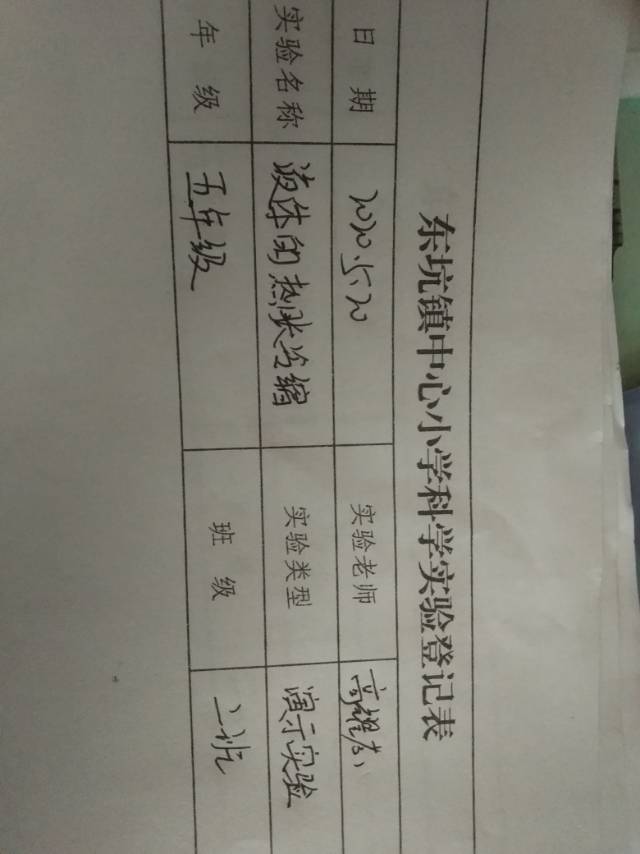 东坑镇中心小学科学实验登记表
日 期 2020.5.20 实验老师 高
实验名称 液体的热胀冷缩 实验类型 演示实验
年 级 五年级 班 级 二班